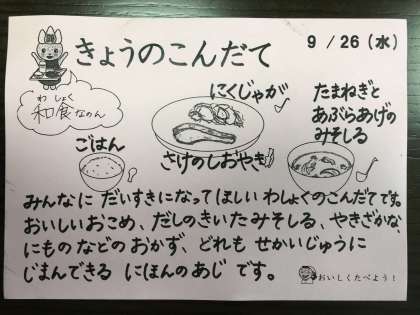 きょうのこんだて
9/26(水)
わしょく
和食なのん
ごはん
にくじゃが
さけのしおやき
たまねぎと
あぶらあげの
みそしる
みんなに だいすきになってほしい わしょくのこんだてです。
おいしいおこめ、だしのきいたみそしる、やきざかな、
にものなどのおかず、どれも せかいじゅうに
じまんできる にほんのあじ です。
おいしくたべよう!